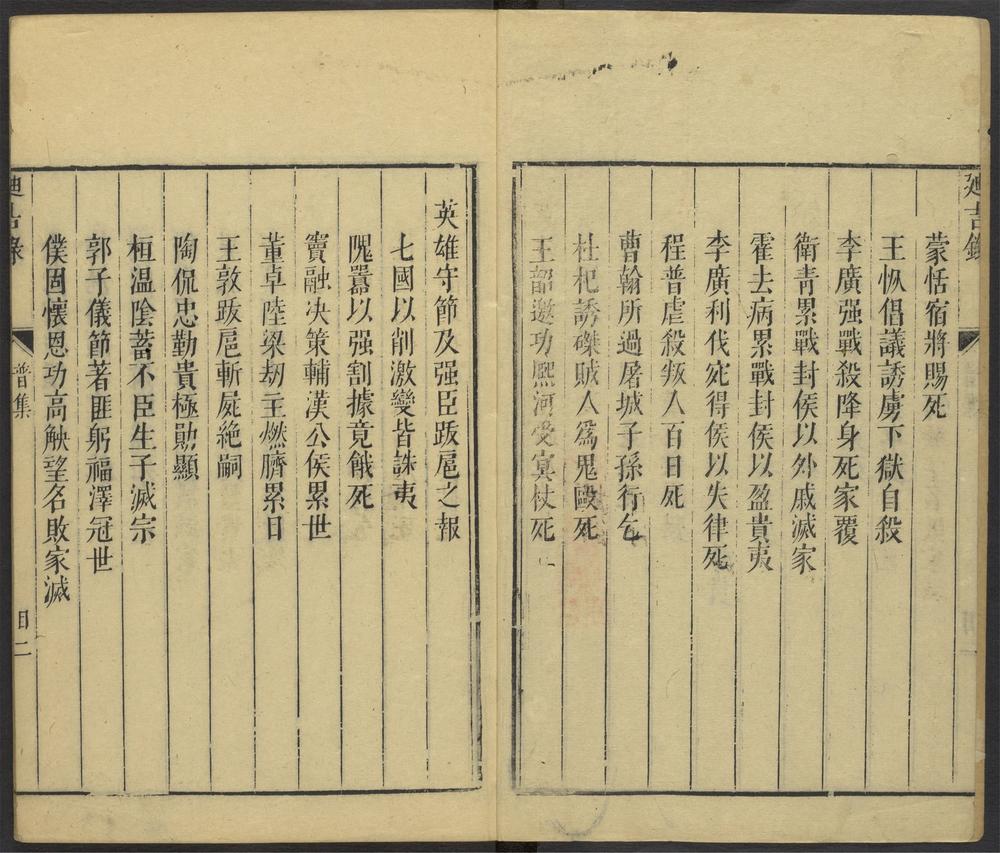 廸吉錄
蒙恬宿將賜死
王恢倡議誘虜下獄自殺
李廣强戰殺降身死家覆
衛青累戰封侯以外戚滅家
霍去病累戰封侯以盈貴夷
李廣利伐宛得侯以失律死
程普虐殺叛人百日死
曹翰所過屠城子孫行乞
杜杞誘磔賊人爲鬼毆死
王韶邀功熙河受冥杖死
英雄守節及强臣跋扈之報
七國以削激變皆誅夷
隗囂以强割據竟餓死
竇融決策輔漢公侯累世
董卓陸梁劫主燃臍累日
王敦跋扈斬屍絶嗣
陶侃忠勤貴極勛顯
桓温陰蓄不臣生子滅宗
郭子儀節著匪躬福澤冠世
僕固懷恩功高觖望名敗家滅
廸吉錄
普集
目二